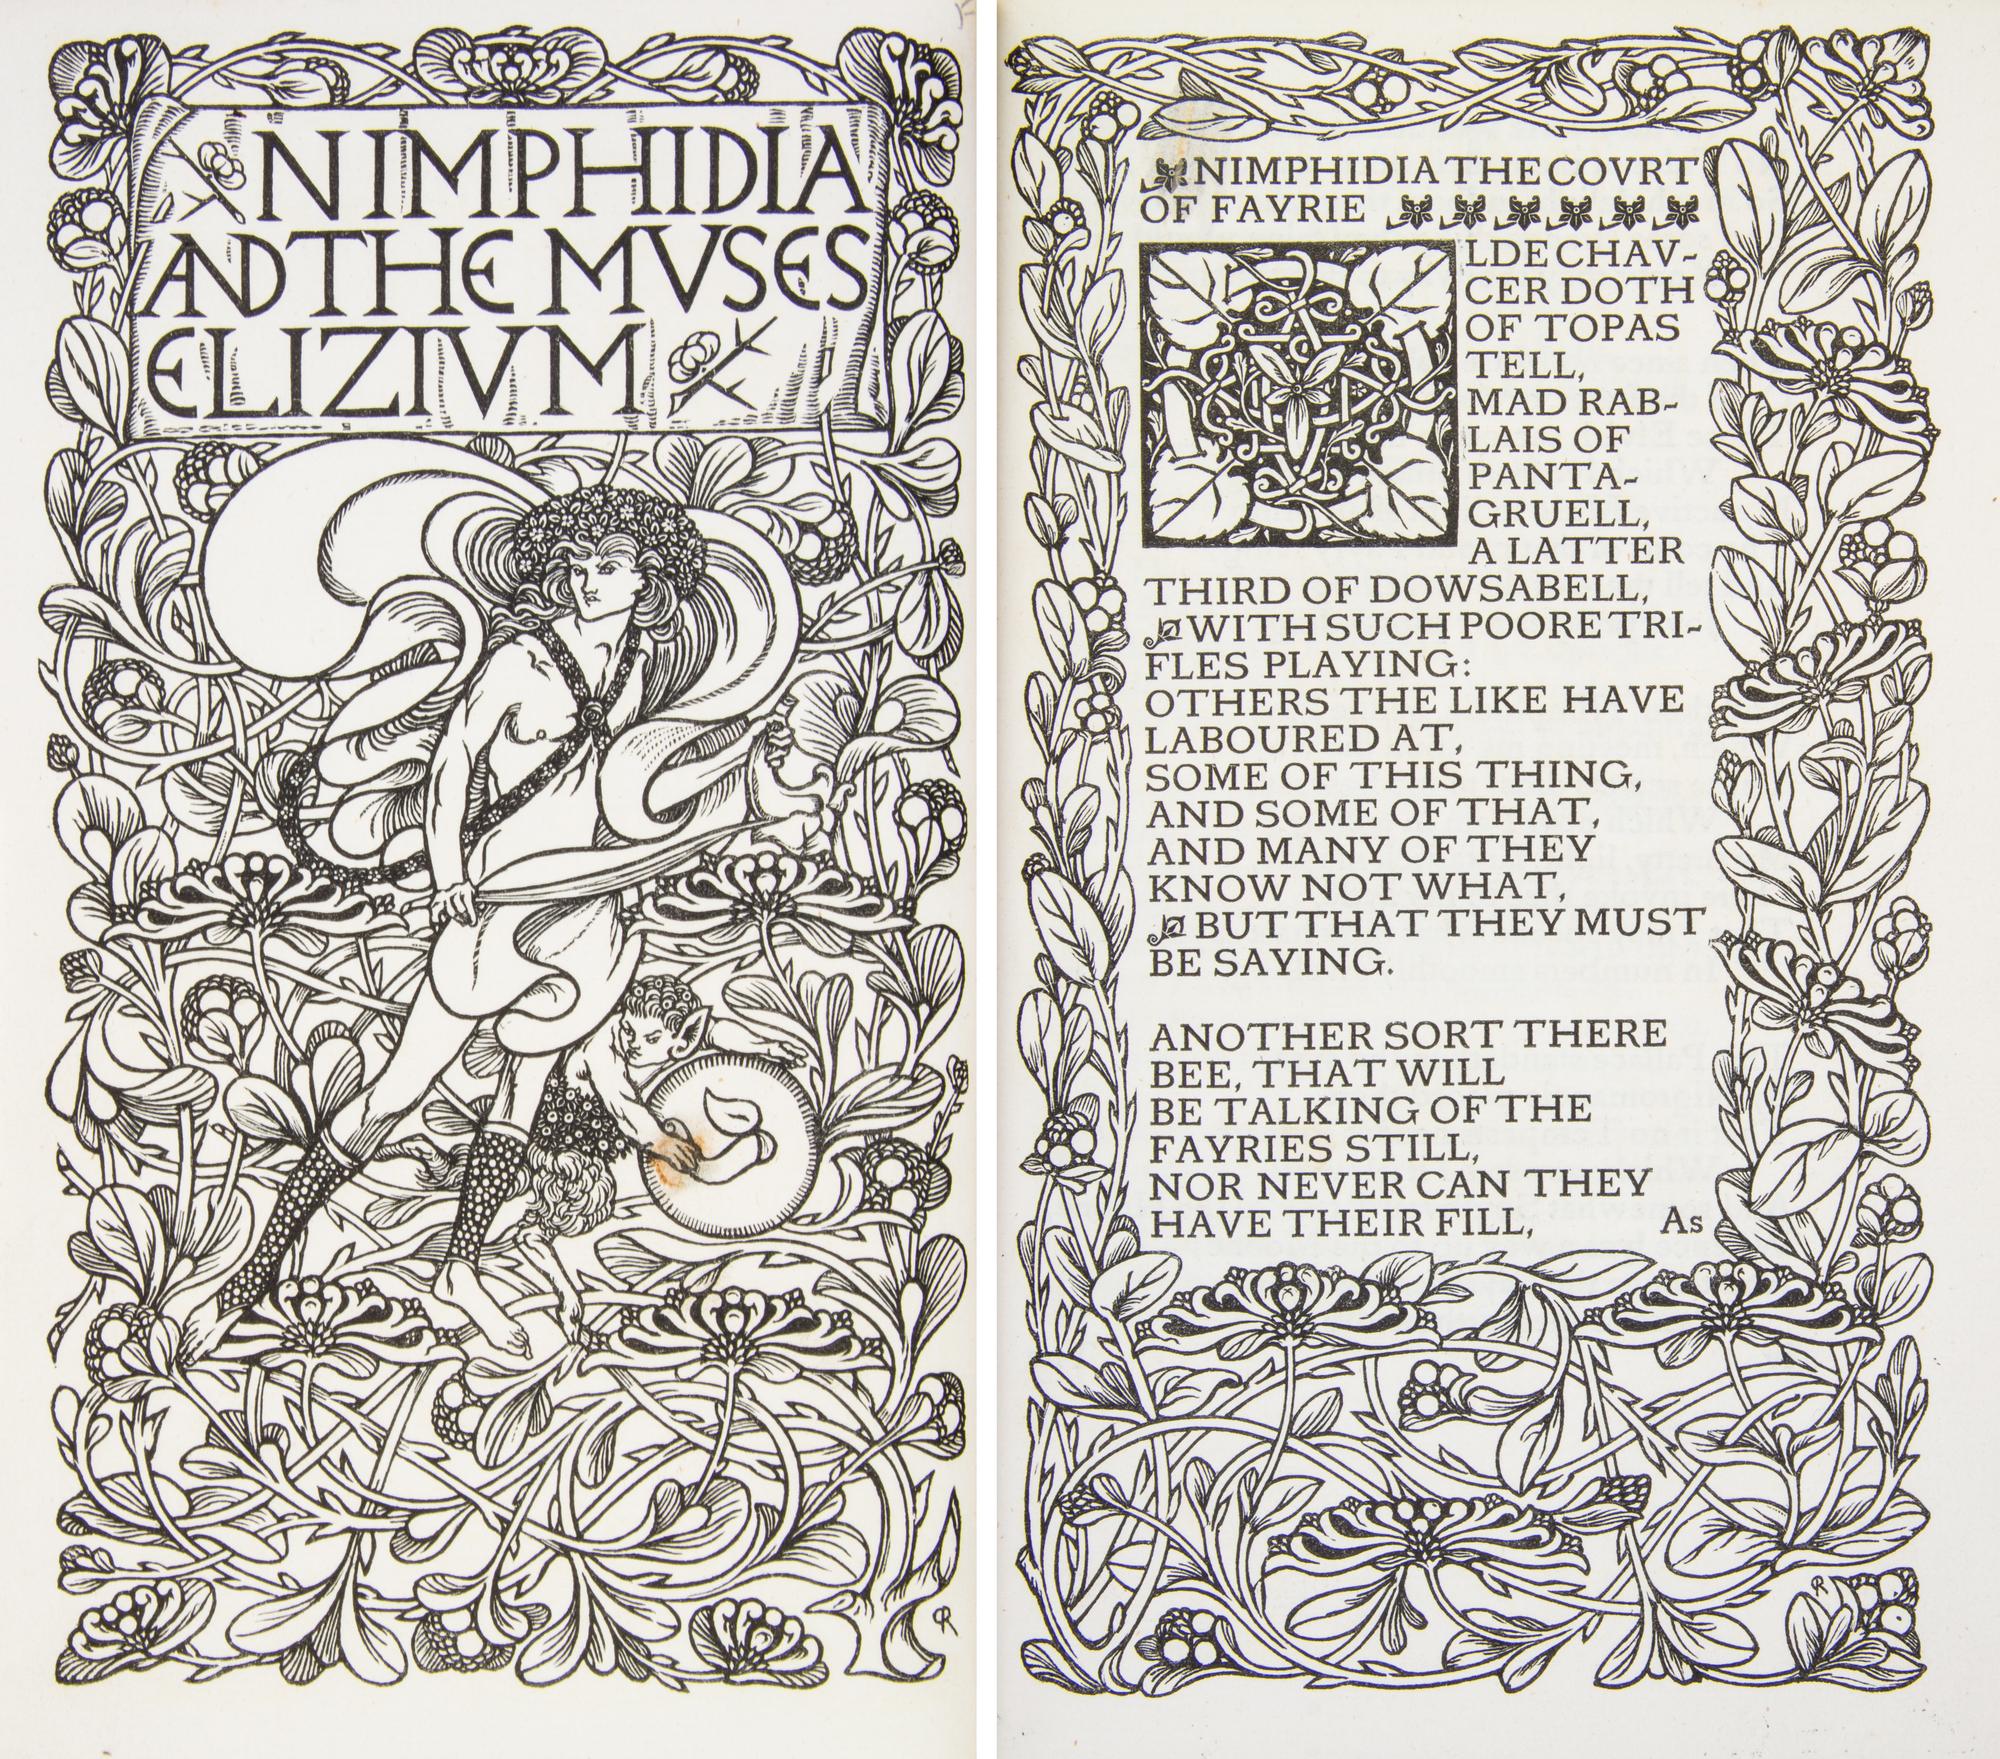 NIMPHIDIA
AND THE MVSES
ELIZIVM
CR
NIMPHIDIA THE COVRT
OF FAYRIE
OLDE CHAV-
CER DOTH
OF TOPAS
TELL,
MAD RAB-
LAIS OF
PANTA-
GRUELL,
A LATTER
THIRD OF DOWSABELL,
WITH SUCH POORE TRI-
FLES PLAYING:
OTHERS THE LIKE HAVE
LABOURED AT,
SOME OF THIS THING,
AND SOME OF THAT,
AND MANY OF THEY
KNOW NOT WHAT,
BUT THAT THEY MUST
BE SAYING.
ANOTHER SORT THERE
BEE, THAT WILL
BE TALKING OF THE
FAYRIES STILL,
NOR NEVER CAN THEY
HAVE THEIR FILL,
As
CR